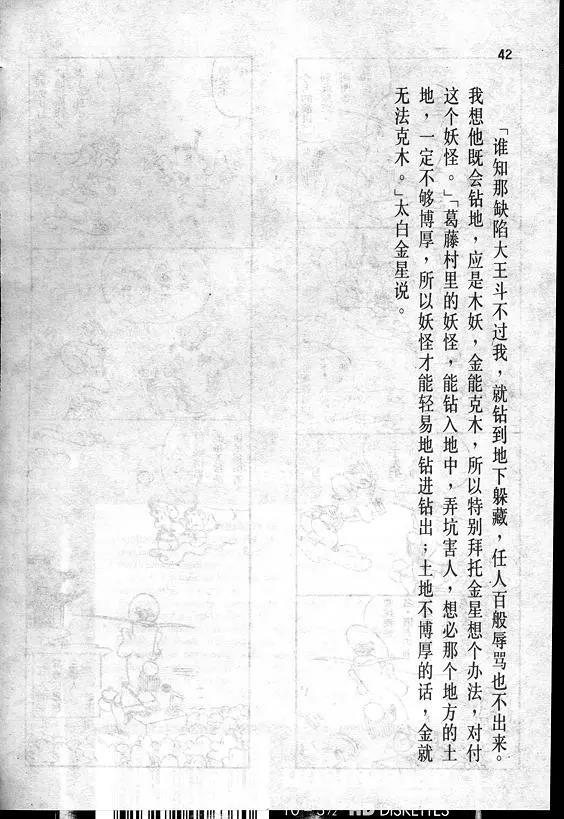 42
「谁知那缺陷大王斗不过我，就钻到地下躲藏，任人百般辱骂也不出来。
我想他既会钻地，应是木妖，金能克木，所以特别拜托金星想个办法，对付
这个妖怪。」「葛藤村里的妖怪，能钻入地中，弄坑害人，想必那个地方的土
地，一定不够博厚，所以妖怪才能轻易地钻进钻出；土地不博厚的话，金就
无法克木。」太白金星说。
HD DISKETTES